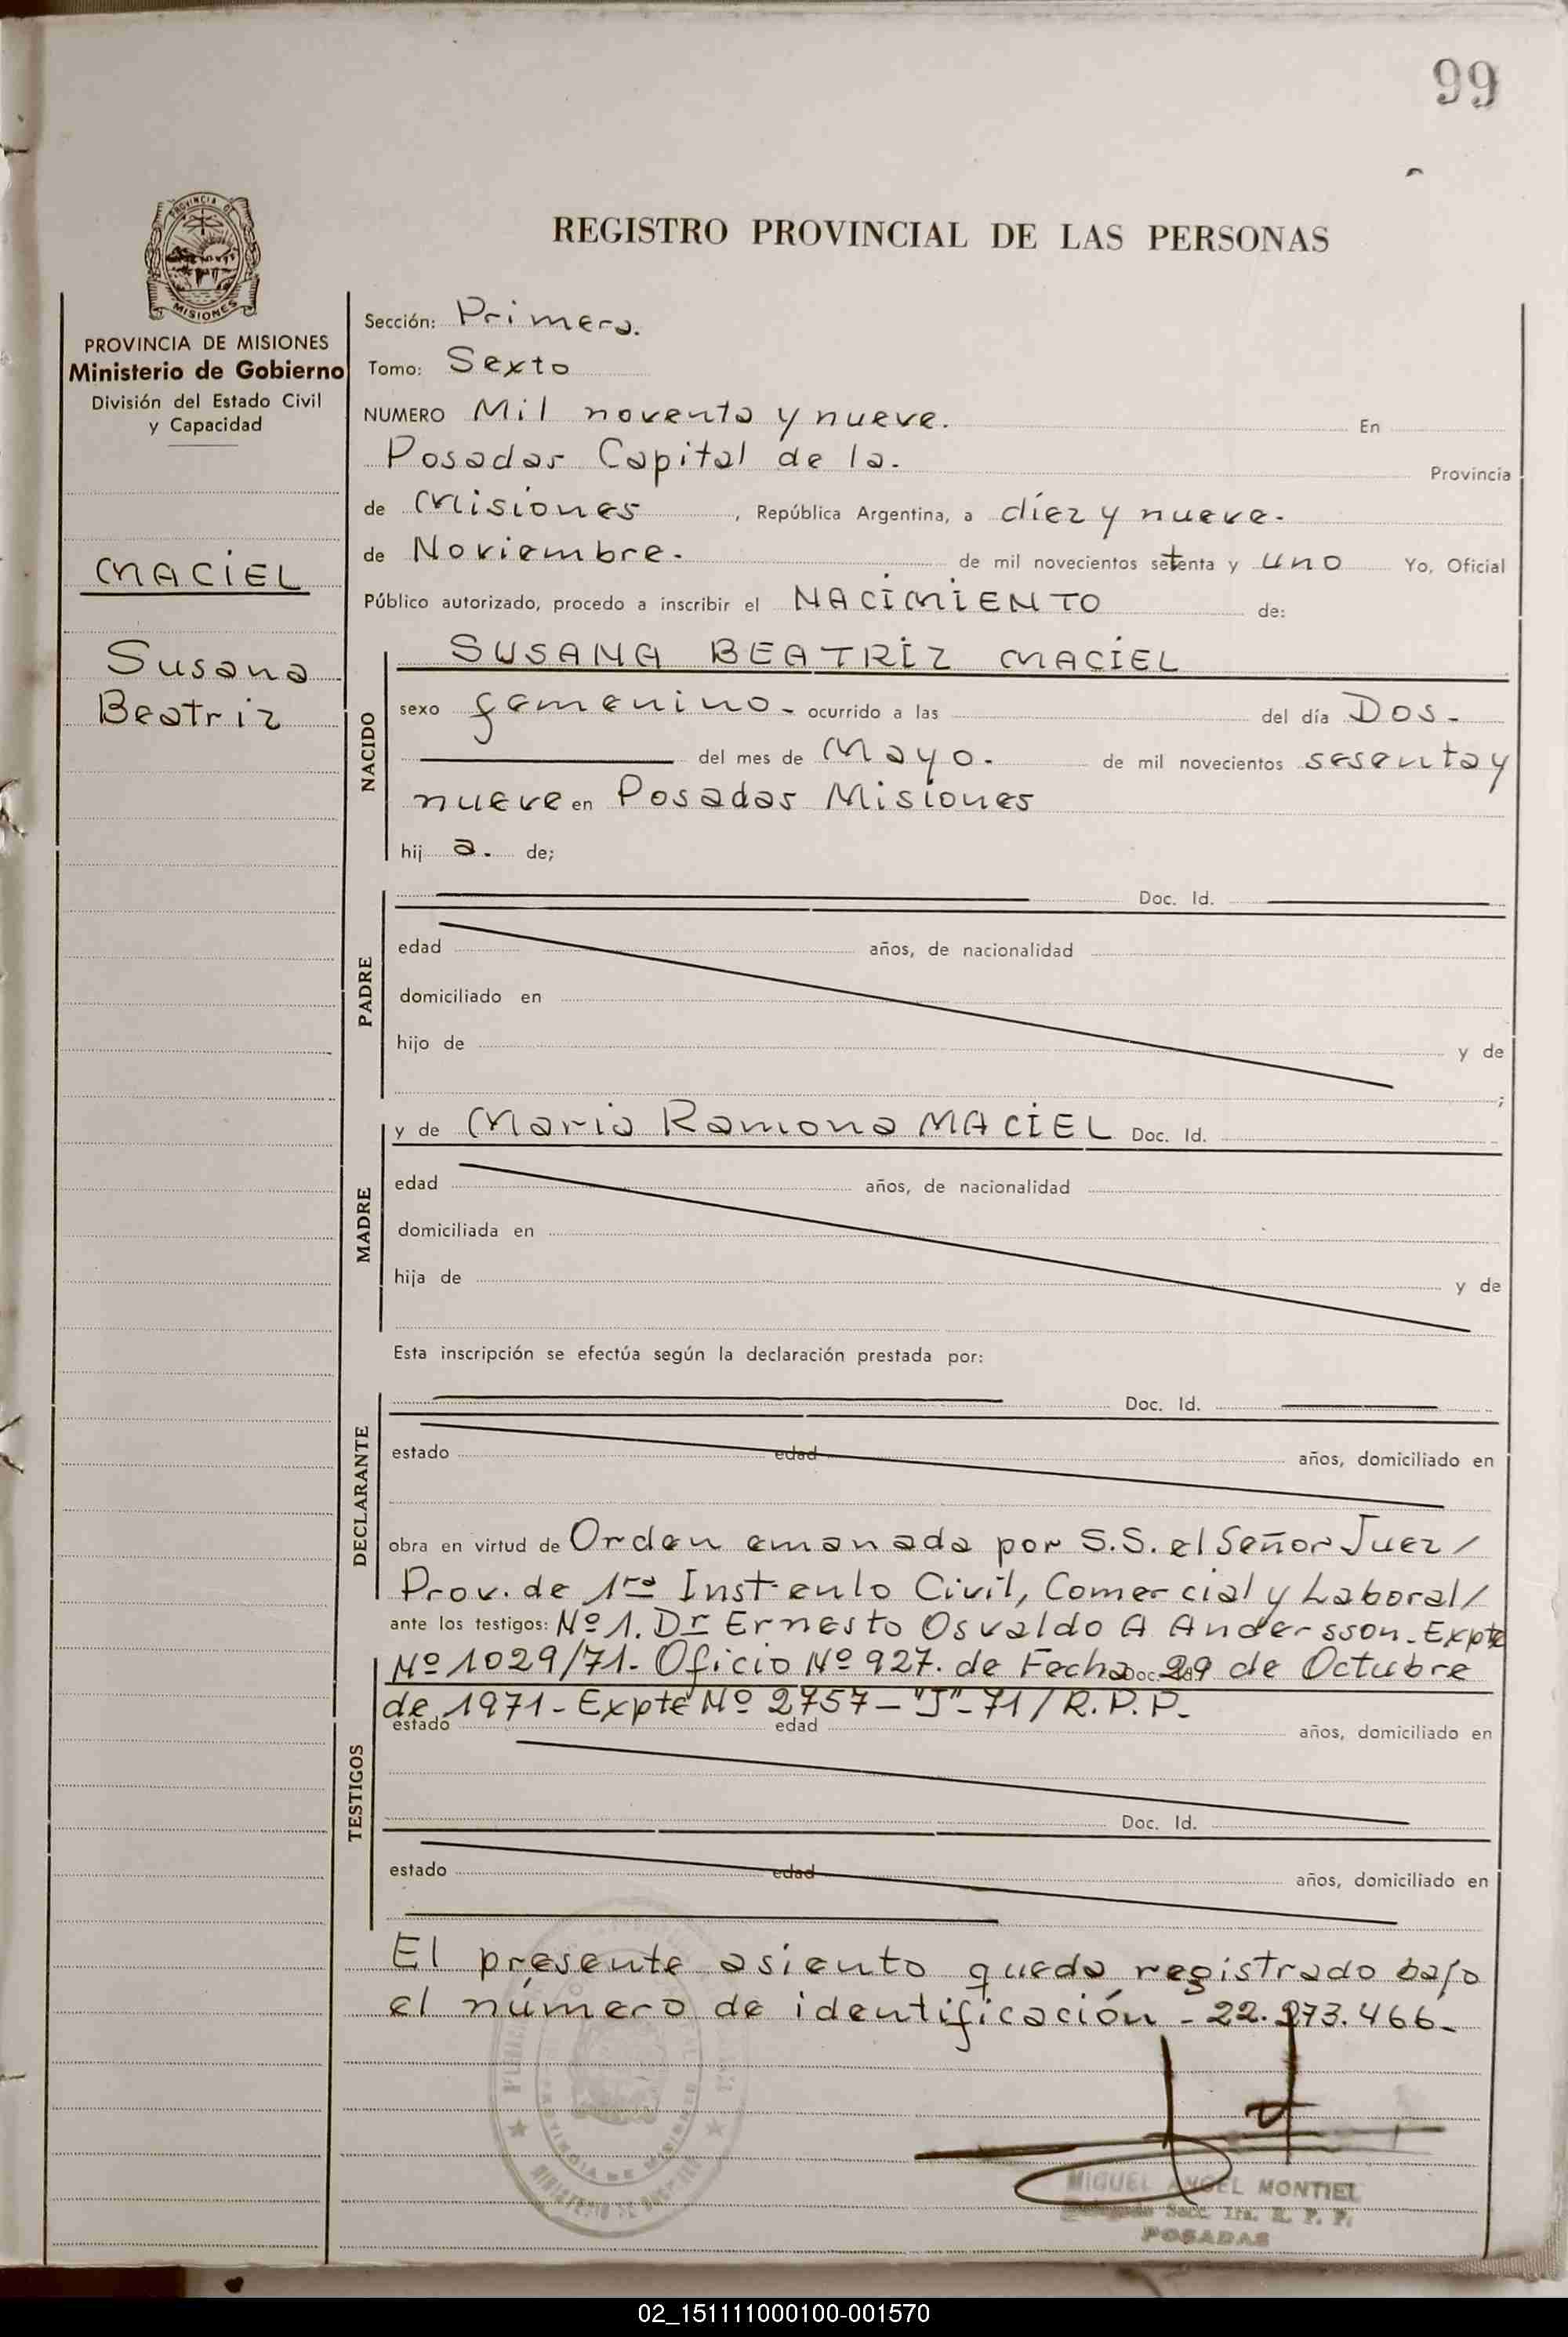 99
PROVINCIA DE
MISIONES
REGISTRO PROVINCIAL DE LAS PERSONAS
PROVINCIA DE MISIONES
Ministerio de Gobierno
División del Estado Civil
y Capacidad
MACIEL
Susana
Beatriz
Sección: Primera.
Tomo: Sexto
NUMERO Mil noventa y nueve. En
Posadas Capital de la. Provincia
de Misiones, República Argentina, a diez y nueve-
de Noviembre. de mil novecientos setenta y uno Yo, Oficial
Público autorizado, procedo a inscribir el NACIMIENTO de:
NACIDO
SUSANA BEATRIZ MACIEL
sexo femenino- ocurrido a las del día Dos-
del mes de Mayo. de mil novecientos sesenta y
nueve en Posadas Misiones
hij a. de;
PADRE
Doc. Id.
edad años, de nacionalidad
domiciliado en
hijo de y de
;
MADRE
y de Maria Ramona MACIEL Doc. Id.
edad años, de nacionalidad
domiciliada en
hija de y de
Esta inscripción se efectúa según la declaración prestada por:
DECLARANTE
Doc. Id.
estado edad años, domiciliado en
obra en virtud de Orden emanada por S.S. el Señor Juez /
Prov. de 1ra Inst. en lo Civil, Comercial y Laboral /
ante los testigos: Nº 1. Dr Ernesto Osvaldo A Andersson. Expte
Nº 1029/71- Oficio Nº 927. de Fecha Doc. 29 de Octubre
de 1971- Expte Nº 2757-"J"-71/R.P.P.-
TESTIGOS
estado edad años, domiciliado en
Doc. Id.
estado edad años, domiciliado en
El presente asiento queda registrado bajo
el número de identificación - 22.273.466-
MIGUEL ANGEL MONTIEL
Secc. 1ra. R. P. P.
POSADAS
02_151111000100-001570